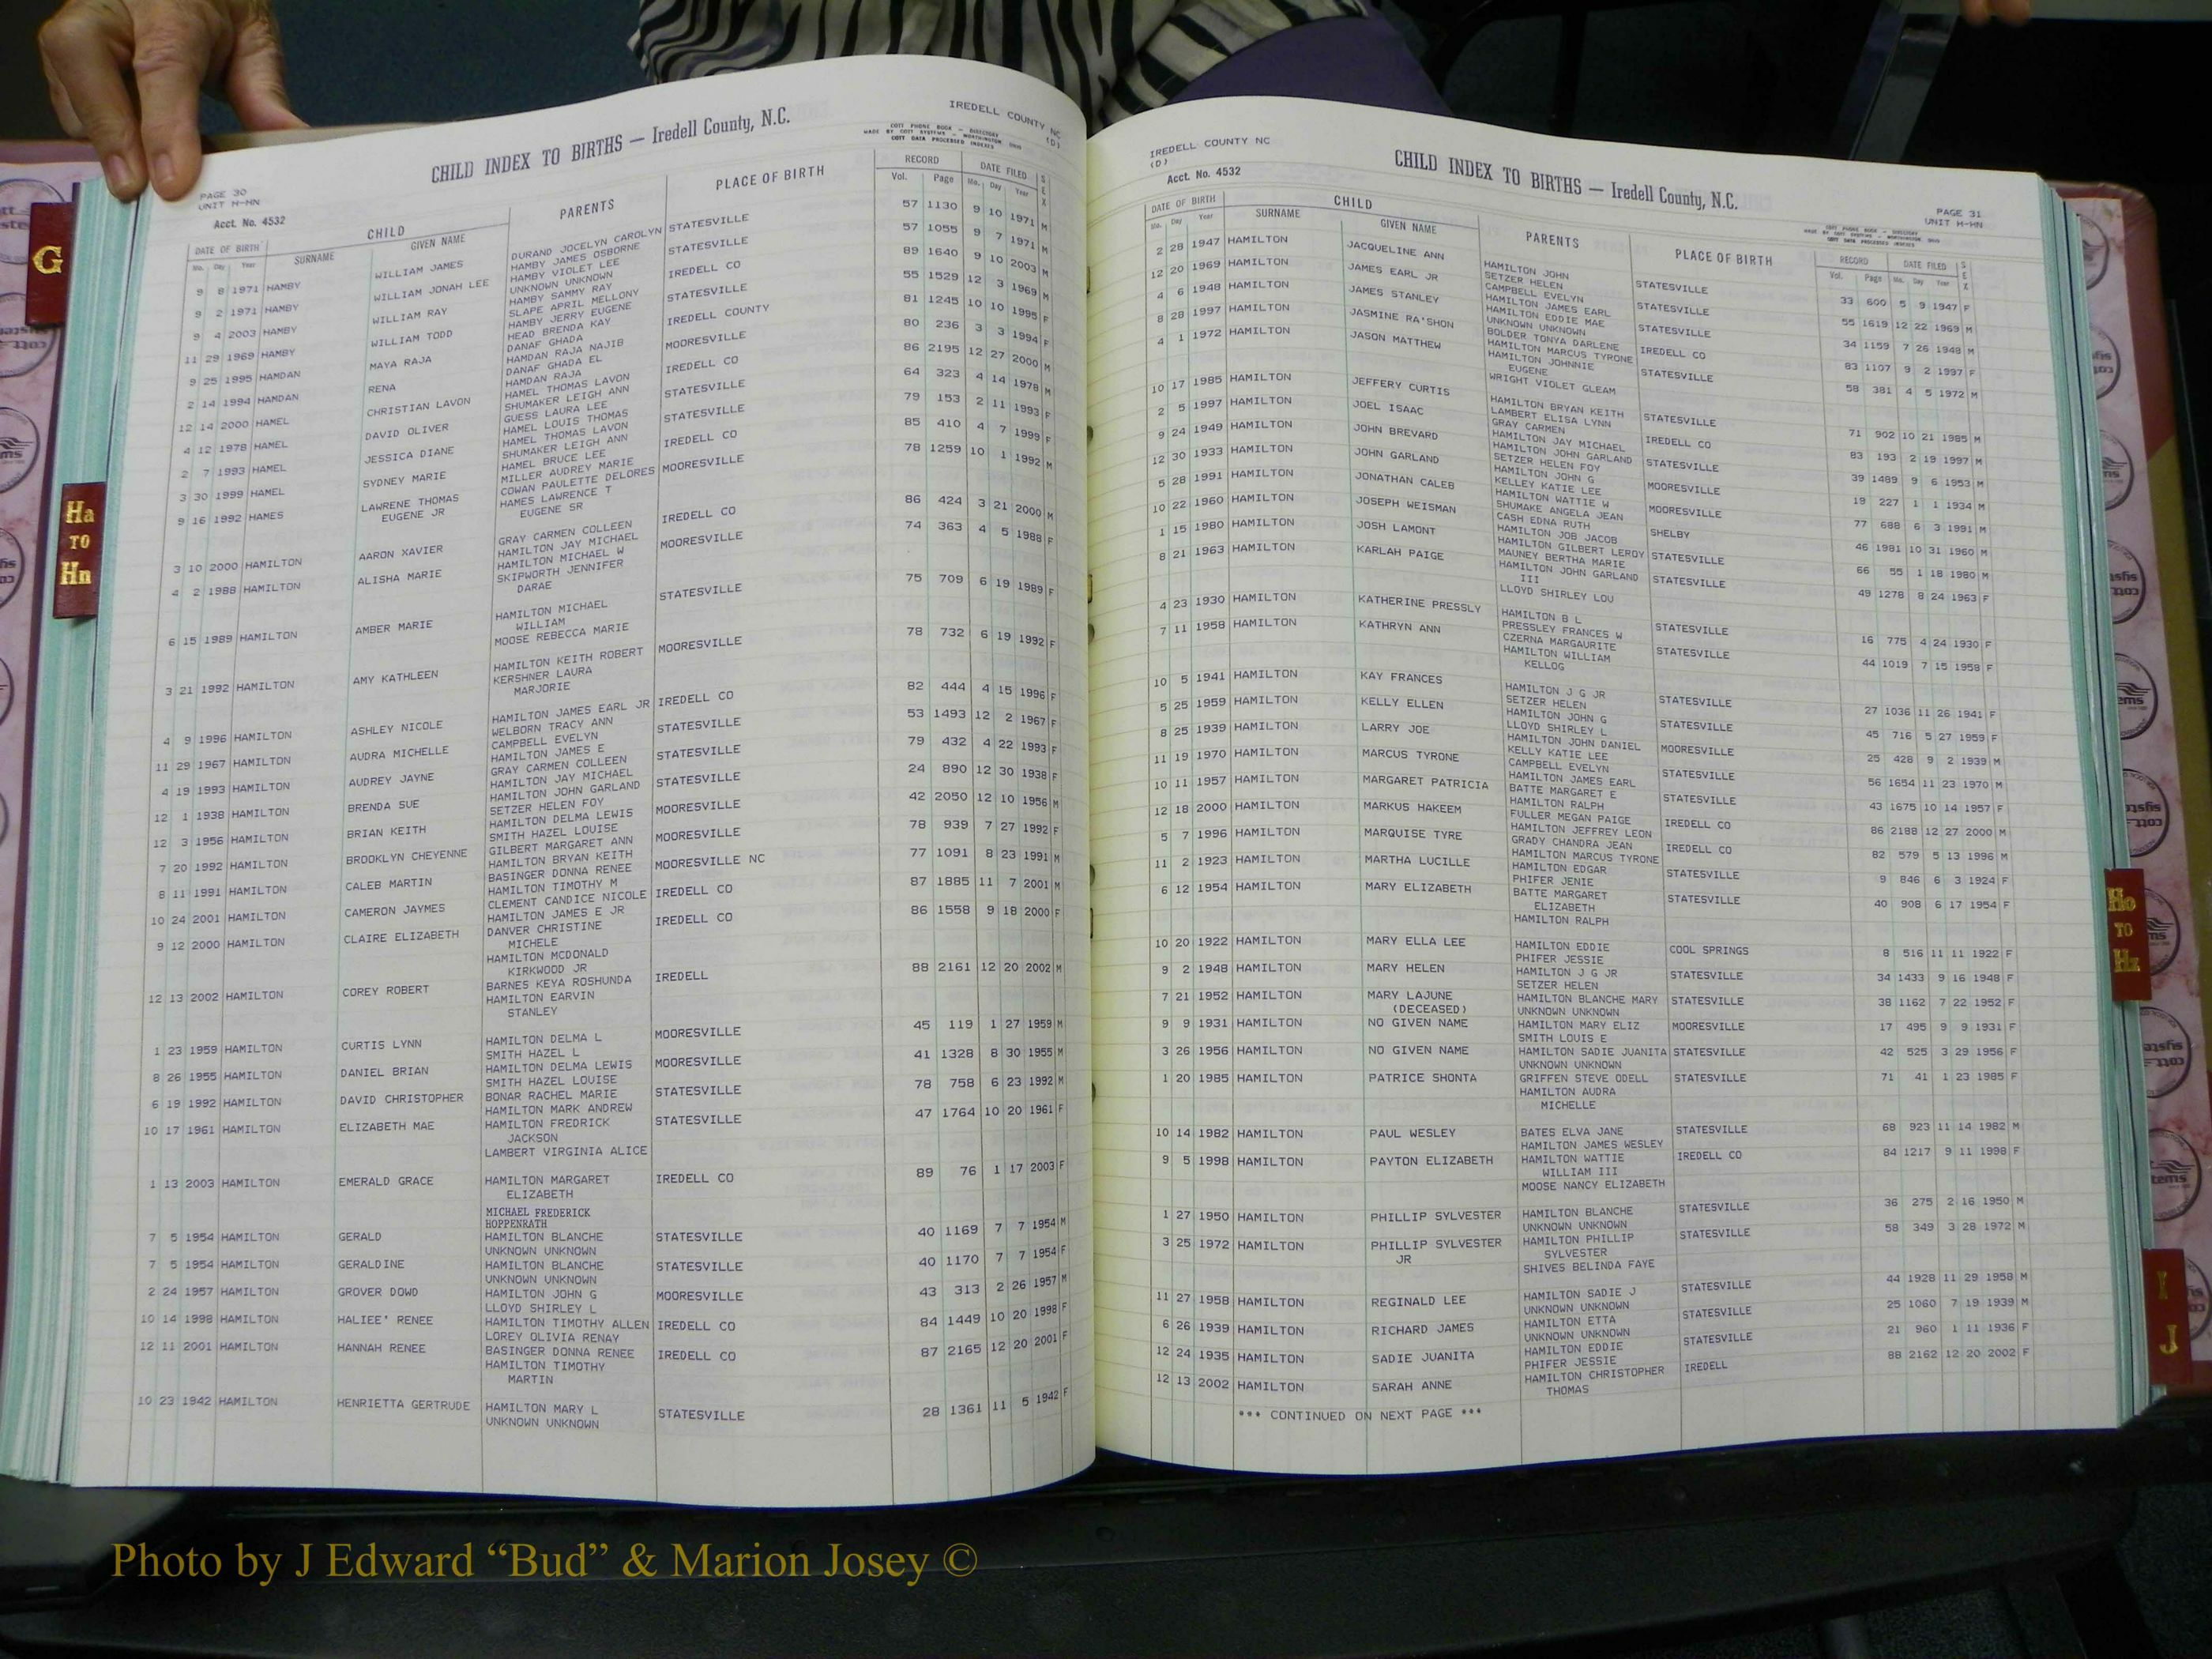 IREDELL COUNTY NC
(D)
CHILD INDEX TO BIRTHS — Iredell County, N.C.
COTT PHONE BOOK - DIRECTORY
MADE BY COTT SYSTEMS - WORTHINGTON OHIO
COTT DATA PROCESSED INDEXES
PAGE 30
UNIT H-HN
Acct. No. 4532
DATE OF BIRTH CHILD PARENTS PLACE OF BIRTH RECORD DATE FILED SEX
Mo. Day Year SURNAME GIVEN NAME Vol. Page Mo. Day Year
9 8 1971 HAMBY WILLIAM JAMES DURAND JOCELYN CAROLYN STATESVILLE 57 1130 9 10 1971 M
HAMBY JAMES OSBORNE
9 2 1971 HAMBY WILLIAM JONAH LEE HAMBY VIOLET LEE STATESVILLE 57 1055 9 7 1971 M
UNKNOWN UNKNOWN
9 4 2003 HAMBY WILLIAM RAY HAMBY SAMMY RAY IREDELL CO 89 1640 9 10 2003 M
SLAPE APRIL MELLONY
11 29 1969 HAMBY WILLIAM TODD HAMBY JERRY EUGENE STATESVILLE 55 1529 12 3 1969 M
HEAD BRENDA KAY
9 25 1995 HAMDAN MAYA RAJA DANAF GHADA IREDELL COUNTY 81 1245 10 10 1995 F
HAMDAN RAJA NAJIB
2 14 1994 HAMDAN RENA DANAF GHADA EL MOORESVILLE 80 236 3 3 1994 F
HAMDAN RAJA
12 14 2000 HAMEL CHRISTIAN LAVON HAMEL THOMAS LAVON IREDELL CO 86 2195 12 27 2000 M
SHUMAKER LEIGH ANN
4 12 1978 HAMEL DAVID OLIVER GUESS LAURA LEE STATESVILLE 64 323 4 14 1978 M
HAMEL LOUIS THOMAS
2 7 1993 HAMEL JESSICA DIANE HAMEL THOMAS LAVON STATESVILLE 79 153 2 11 1993 F
SHUMAKER LEIGH ANN
3 30 1999 HAMEL SYDNEY MARIE HAMEL BRUCE LEE IREDELL CO 85 410 4 7 1999 F
MILLER AUDREY MARIE
9 16 1992 HAMES LAWRENE THOMAS COWAN PAULETTE DELORES MOORESVILLE 78 1259 10 1 1992 M
EUGENE JR HAMES LAWRENCE T
EUGENE SR
3 10 2000 HAMILTON AARON XAVIER GRAY CARMEN COLLEEN IREDELL CO 86 424 3 21 2000 M
HAMILTON JAY MICHAEL
4 2 1988 HAMILTON ALISHA MARIE HAMILTON MICHAEL W MOORESVILLE 74 363 4 5 1988 F
SKIPWORTH JENNIFER
DARAE
6 15 1989 HAMILTON AMBER MARIE HAMILTON MICHAEL STATESVILLE 75 709 6 19 1989 F
WILLIAM
MOOSE REBECCA MARIE
3 21 1992 HAMILTON AMY KATHLEEN HAMILTON KEITH ROBERT MOORESVILLE 78 732 6 19 1992 F
KERSHNER LAURA
MARJORIE
4 9 1996 HAMILTON ASHLEY NICOLE HAMILTON JAMES EARL JR IREDELL CO 82 444 4 15 1996 F
WELBORN TRACY ANN
11 29 1967 HAMILTON AUDRA MICHELLE CAMPBELL EVELYN STATESVILLE 53 1493 12 2 1967 F
HAMILTON JAMES E
4 19 1993 HAMILTON AUDREY JAYNE GRAY CARMEN COLLEEN STATESVILLE 79 432 4 22 1993 F
HAMILTON JAY MICHAEL
12 1 1938 HAMILTON BRENDA SUE HAMILTON JOHN GARLAND STATESVILLE 24 890 12 30 1938 F
SETZER HELEN FOY
12 3 1956 HAMILTON BRIAN KEITH HAMILTON DELMA LEWIS MOORESVILLE 42 2050 12 10 1956 M
SMITH HAZEL LOUISE
7 20 1992 HAMILTON BROOKLYN CHEYENNE GILBERT MARGARET ANN MOORESVILLE 78 939 7 27 1992 F
HAMILTON BRYAN KEITH
8 11 1991 HAMILTON CALEB MARTIN BASINGER DONNA RENEE MOORESVILLE NC 77 1091 8 23 1991 M
HAMILTON TIMOTHY M
10 24 2001 HAMILTON CAMERON JAYMES CLEMENT CANDICE NICOLE IREDELL CO 87 1885 11 7 2001 M
HAMILTON JAMES E JR
9 12 2000 HAMILTON CLAIRE ELIZABETH DANVER CHRISTINE IREDELL CO 86 1558 9 18 2000 F
MICHELE
HAMILTON MCDONALD
KIRKWOOD JR
12 13 2002 HAMILTON COREY ROBERT BARNES KEYA ROSHUNDA IREDELL 88 2161 12 20 2002 M
HAMILTON EARVIN
STANLEY
1 23 1959 HAMILTON CURTIS LYNN HAMILTON DELMA L MOORESVILLE 45 119 1 27 1959 M
SMITH HAZEL L
8 26 1955 HAMILTON DANIEL BRIAN HAMILTON DELMA LEWIS MOORESVILLE 41 1328 8 30 1955 M
SMITH HAZEL LOUISE
6 19 1992 HAMILTON DAVID CHRISTOPHER BONAR RACHEL MARIE STATESVILLE 78 758 6 23 1992 M
HAMILTON MARK ANDREW
10 17 1961 HAMILTON ELIZABETH MAE HAMILTON FREDRICK STATESVILLE 47 1764 10 20 1961 F
JACKSON
LAMBERT VIRGINIA ALICE
1 13 2003 HAMILTON EMERALD GRACE HAMILTON MARGARET IREDELL CO 89 76 1 17 2003 F
ELIZABETH
MICHAEL FREDERICK
HOPPENRATH
7 5 1954 HAMILTON GERALD HAMILTON BLANCHE STATESVILLE 40 1169 7 7 1954 M
UNKNOWN UNKNOWN
7 5 1954 HAMILTON GERALDINE HAMILTON BLANCHE STATESVILLE 40 1170 7 7 1954 F
UNKNOWN UNKNOWN
2 24 1957 HAMILTON GROVER DOWD HAMILTON JOHN G MOORESVILLE 43 313 2 26 1957 M
LLOYD SHIRLEY L
10 14 1998 HAMILTON HALIEE' RENEE HAMILTON TIMOTHY ALLEN IREDELL CO 84 1449 10 20 1998 F
LOREY OLIVIA RENAY
12 11 2001 HAMILTON HANNAH RENEE BASINGER DONNA RENEE IREDELL CO 87 2165 12 20 2001 F
HAMILTON TIMOTHY
MARTIN
10 23 1942 HAMILTON HENRIETTA GERTRUDE HAMILTON MARY L STATESVILLE 28 1361 11 5 1942 F
UNKNOWN UNKNOWN
IREDELL COUNTY NC
(D)
CHILD INDEX TO BIRTHS — Iredell County, N.C.
Acct. No. 4532
PAGE 31
UNIT H-HN
COTT PHONE BOOK - DIRECTORY
MADE BY COTT SYSTEMS - WORTHINGTON OHIO
COTT DATA PROCESSED INDEXES
DATE OF BIRTH CHILD PARENTS PLACE OF BIRTH RECORD DATE FILED SEX
Mo. Day Year SURNAME GIVEN NAME Vol. Page Mo. Day Year
2 28 1947 HAMILTON JACQUELINE ANN HAMILTON JOHN STATESVILLE 33 600 5 9 1947 F
SETZER HELEN
12 20 1969 HAMILTON JAMES EARL JR CAMPBELL EVELYN STATESVILLE 55 1619 12 22 1969 M
HAMILTON JAMES EARL
4 6 1948 HAMILTON JAMES STANLEY HAMILTON EDDIE MAE IREDELL CO 34 1159 7 26 1948 M
UNKNOWN UNKNOWN
8 28 1997 HAMILTON JASMINE RA'SHON BOLDER TONYA DARLENE STATESVILLE 83 1107 9 2 1997 F
HAMILTON MARCUS TYRONE
4 1 1972 HAMILTON JASON MATTHEW HAMILTON JOHNNIE 58 381 4 5 1972 M
EUGENE
WRIGHT VIOLET GLEAM
10 17 1985 HAMILTON JEFFERY CURTIS HAMILTON BRYAN KEITH STATESVILLE 71 902 10 21 1985 M
LAMBERT ELISA LYNN
2 5 1997 HAMILTON JOEL ISAAC GRAY CARMEN IREDELL CO 83 193 2 19 1997 M
HAMILTON JAY MICHAEL
9 24 1949 HAMILTON JOHN BREVARD HAMILTON JOHN GARLAND STATESVILLE 39 1489 9 6 1953 M
SETZER HELEN FOY
12 30 1933 HAMILTON JOHN GARLAND HAMILTON JOHN G MOORESVILLE 19 227 1 1 1934 M
KELLEY KATIE LEE
5 28 1991 HAMILTON JONATHAN CALEB HAMILTON WATTIE W MOORESVILLE 77 688 6 3 1991 M
SHUMAKE ANGELA JEAN
10 22 1960 HAMILTON JOSEPH WEISMAN CASH EDNA RUTH SHELBY 46 1981 10 31 1960 M
HAMILTON JOB JACOB
1 15 1980 HAMILTON JOSH LAMONT HAMILTON GILBERT LEROY STATESVILLE 66 55 1 18 1980 M
MAUNEY BERTHA MARIE
8 21 1963 HAMILTON KARLAH PAIGE HAMILTON JOHN GARLAND STATESVILLE 49 1278 8 24 1963 F
III
LLOYD SHIRLEY LOU
4 23 1930 HAMILTON KATHERINE PRESSLY HAMILTON B L STATESVILLE 16 775 4 24 1930 F
PRESSLEY FRANCES W
7 11 1958 HAMILTON KATHRYN ANN CZERNA MARGAURITE STATESVILLE 44 1019 7 15 1958 F
HAMILTON WILLIAM
KELLOG
10 5 1941 HAMILTON KAY FRANCES HAMILTON J G JR STATESVILLE 27 1036 11 26 1941 F
SETZER HELEN
5 25 1959 HAMILTON KELLY ELLEN HAMILTON JOHN G STATESVILLE 45 716 5 27 1959 F
LLOYD SHIRLEY L
8 25 1939 HAMILTON LARRY JOE HAMILTON JOHN DANIEL MOORESVILLE 25 428 9 2 1939 M
KELLY KATIE LEE
11 19 1970 HAMILTON MARCUS TYRONE CAMPBELL EVELYN STATESVILLE 56 1654 11 23 1970 M
HAMILTON JAMES EARL
10 11 1957 HAMILTON MARGARET PATRICIA BATTE MARGARET E STATESVILLE 43 1675 10 14 1957 F
HAMILTON RALPH
12 18 2000 HAMILTON MARKUS HAKEEM FULLER MEGAN PAIGE IREDELL CO 86 2188 12 27 2000 M
HAMILTON JEFFREY LEON
5 7 1996 HAMILTON MARQUISE TYRE GRADY CHANDRA JEAN IREDELL CO 82 579 5 13 1996 M
HAMILTON MARCUS TYRONE
11 2 1923 HAMILTON MARTHA LUCILLE HAMILTON EDGAR STATESVILLE 9 846 6 3 1924 F
PHIFER JENIE
6 12 1954 HAMILTON MARY ELIZABETH BATTE MARGARET STATESVILLE 40 908 6 17 1954 F
ELIZABETH
HAMILTON RALPH
10 20 1922 HAMILTON MARY ELLA LEE HAMILTON EDDIE COOL SPRINGS 8 516 11 11 1922 F
PHIFER JESSIE
9 2 1948 HAMILTON MARY HELEN HAMILTON J G JR STATESVILLE 34 1433 9 16 1948 F
SETZER HELEN
7 21 1952 HAMILTON MARY LAJUNE HAMILTON BLANCHE MARY STATESVILLE 38 1162 7 22 1952 F
(DECEASED) UNKNOWN UNKNOWN
9 9 1931 HAMILTON NO GIVEN NAME HAMILTON MARY ELIZ MOORESVILLE 17 495 9 9 1931 F
SMITH LOUIS E
3 26 1956 HAMILTON NO GIVEN NAME HAMILTON SADIE JUANITA STATESVILLE 42 525 3 29 1956 F
UNKNOWN UNKNOWN
1 20 1985 HAMILTON PATRICE SHONTA GRIFFEN STEVE ODELL STATESVILLE 71 41 1 23 1985 F
HAMILTON AUDRA
MICHELLE
10 14 1982 HAMILTON PAUL WESLEY BATES ELVA JANE STATESVILLE 68 923 11 14 1982 M
HAMILTON JAMES WESLEY
9 5 1998 HAMILTON PAYTON ELIZABETH HAMILTON WATTIE IREDELL CO 84 1217 9 11 1998 F
WILLIAM III
MOOSE NANCY ELIZABETH
1 27 1950 HAMILTON PHILLIP SYLVESTER HAMILTON BLANCHE STATESVILLE 36 275 2 16 1950 M
UNKNOWN UNKNOWN
3 25 1972 HAMILTON PHILLIP SYLVESTER HAMILTON PHILLIP STATESVILLE 58 349 3 28 1972 M
JR SYLVESTER
SHIVES BELINDA FAYE
11 27 1958 HAMILTON REGINALD LEE HAMILTON SADIE J STATESVILLE 44 1928 11 29 1958 M
UNKNOWN UNKNOWN
6 26 1939 HAMILTON RICHARD JAMES HAMILTON ETTA STATESVILLE 25 1060 7 19 1939 M
UNKNOWN UNKNOWN
12 24 1935 HAMILTON SADIE JUANITA HAMILTON EDDIE STATESVILLE 21 960 1 11 1936 F
PHIFER JESSIE
12 13 2002 HAMILTON SARAH ANNE HAMILTON CHRISTOPHER IREDELL 88 2162 12 20 2002 F
THOMAS
*** CONTINUED ON NEXT PAGE ***
G
Ha
TO
Hn
Ho
TO
Hz
I
J
Photo by J Edward “Bud” & Marion Josey ©